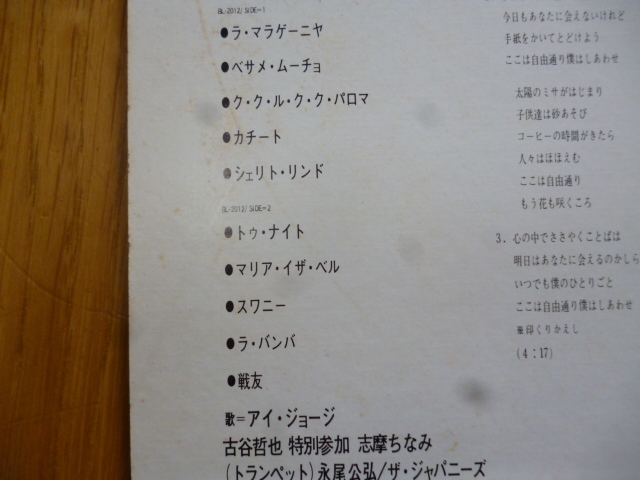 BL-2012/SIDE=1
●ラ・マラゲーニャ
●ベサメ・ムーチョ
●ク・ク・ル・ク・ク・パロマ
●カチート
●シェリト・リンド
BL-2012/SIDE=2
●トゥ・ナイト
●マリア・イザ・ベル
●スワニー
●ラ・バンバ
●戦友
歌=アイ・ジョージ
古谷哲也 特別参加 志摩ちなみ
(トランペット)永尾公弘/ザ・ジャパニーズ
今日もあなたに会えないけれど
手紙をかいてとどけよう
ここは自由通り僕はしあわせ
太陽のミサがはじまり
子供達は砂あそび
コーヒーの時間がきたら
人々はほほえむ
ここは自由通り
もう花も咲くころ
3. 心の中でささやくことばは
明日はあなたに会えるのかしら
いつでも僕のひとりごと
ここは自由通り僕はしあわせ
※印くりかえし
(4:17)